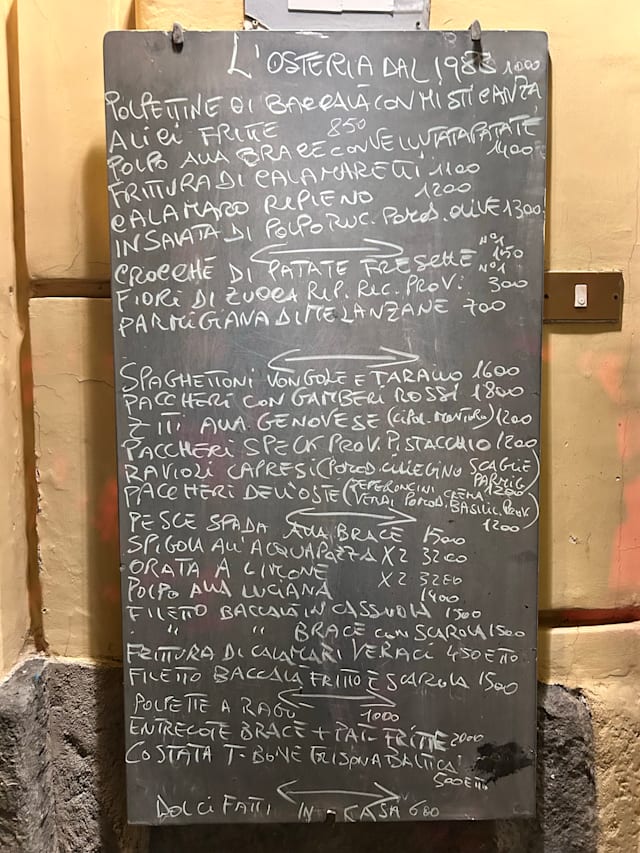 L'OSTERIA DAL 1983 1000
POLPETTINE DI BACCALÀ CON MISTICANZA
ALICI FRITTE 850
POLPO ALLA BRACE CON VELLUTATA PATATE
FRITTURA DI CALAMARETTI 1100 1400
CALAMARO RIPIENO 1200
INSALATA DI POLPO RUC. POMOD. OLIVE 1300
CROCCHÈ DI PATATE FRESCHE N°1 150
FIORI DI ZUCCA RIP. RIC. PROV. N°1 300
PARMIGIANA DI MELANZANE 700
SPAGHETTONI VONGOLE E TARALLO 1600
PACCHERI CON GAMBERI ROSSI 1800
ZITI ALLA GENOVESE (CIPOL. MONTORO) 1200
PACCHERI SPECK PROV. PISTACCHIO 1200
RAVIOLI CAPRESI (POMOD. CILIEGINO SCAGLIE PARMIG) 1200
PACCHERI DELL'OSTE (PEPERONCINI VERDI POMOD. CREMA BASILIC. PROV.) 1200
PESCE SPADA ALLA BRACE 1500
SPIGOLA ALL'ACQUAPAZZA X2 3200
ORATA A LIMONE X2 3200
POLPO ALLA LUCIANA 1400
FILETTO BACCALÀ IN CASSUOLA 1500
" " BRACE CON SCAROLA 1500
FRITTURA DI CALAMARI VERACI 450 ETTO
FILETTO BACCALÀ FRITTO E SCAROLA 1500
POLPETTE A RAGÙ 1000
ENTRECOTE BRACE + PAT. FRITTE 2000
COSTATA T-BONE FRISONA BALTICA
500 ETTO
DOLCI FATTI IN CASA 600